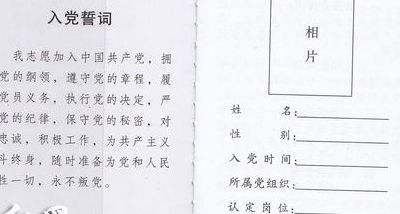 入党誓词
我志愿加入中国共产党，拥
党的纲领，遵守党的章程，履
党员义务，执行党的决定，严
党的纪律，保守党的秘密，对
忠诚，积极工作，为共产主义
斗终身，随时准备为党和人民
牲一切，永不叛党。
相
片
姓　　名：
性　　别：
入党时间：
所属党组织：
认定岗位：